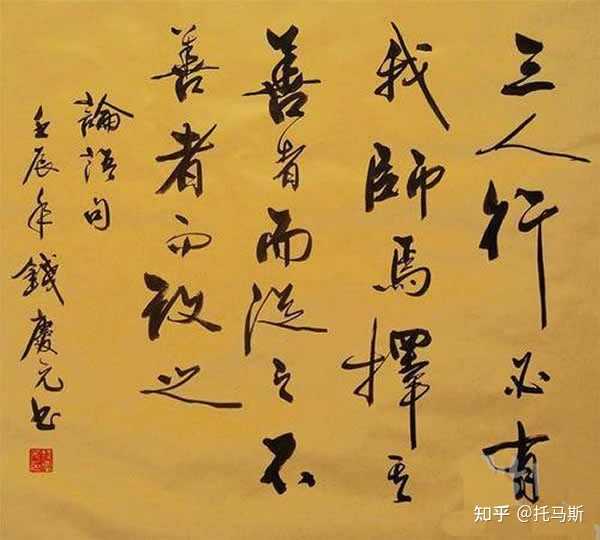 三人行必有
我師焉擇其
善者而從之不
善者而改之
論語句
壬辰年錢慶元书
知乎 @托马斯